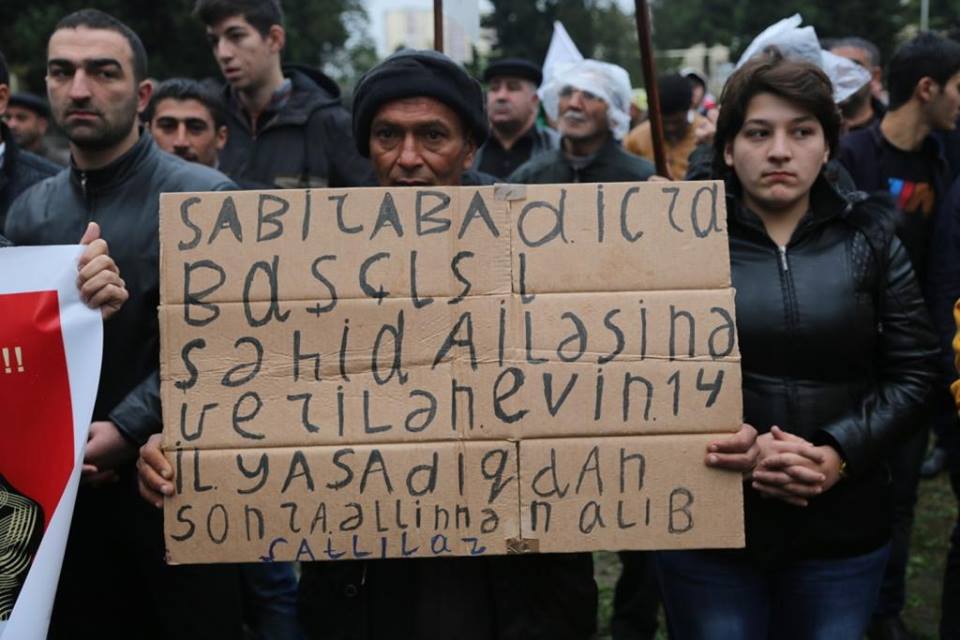 !!
SABİrABAd.İCra
BaŞçısı
şəhid Ailəsinə
verilən.evin.14
İL.yASAdıqdAn
sonrA.əllinnən alıB
sAtLıLar